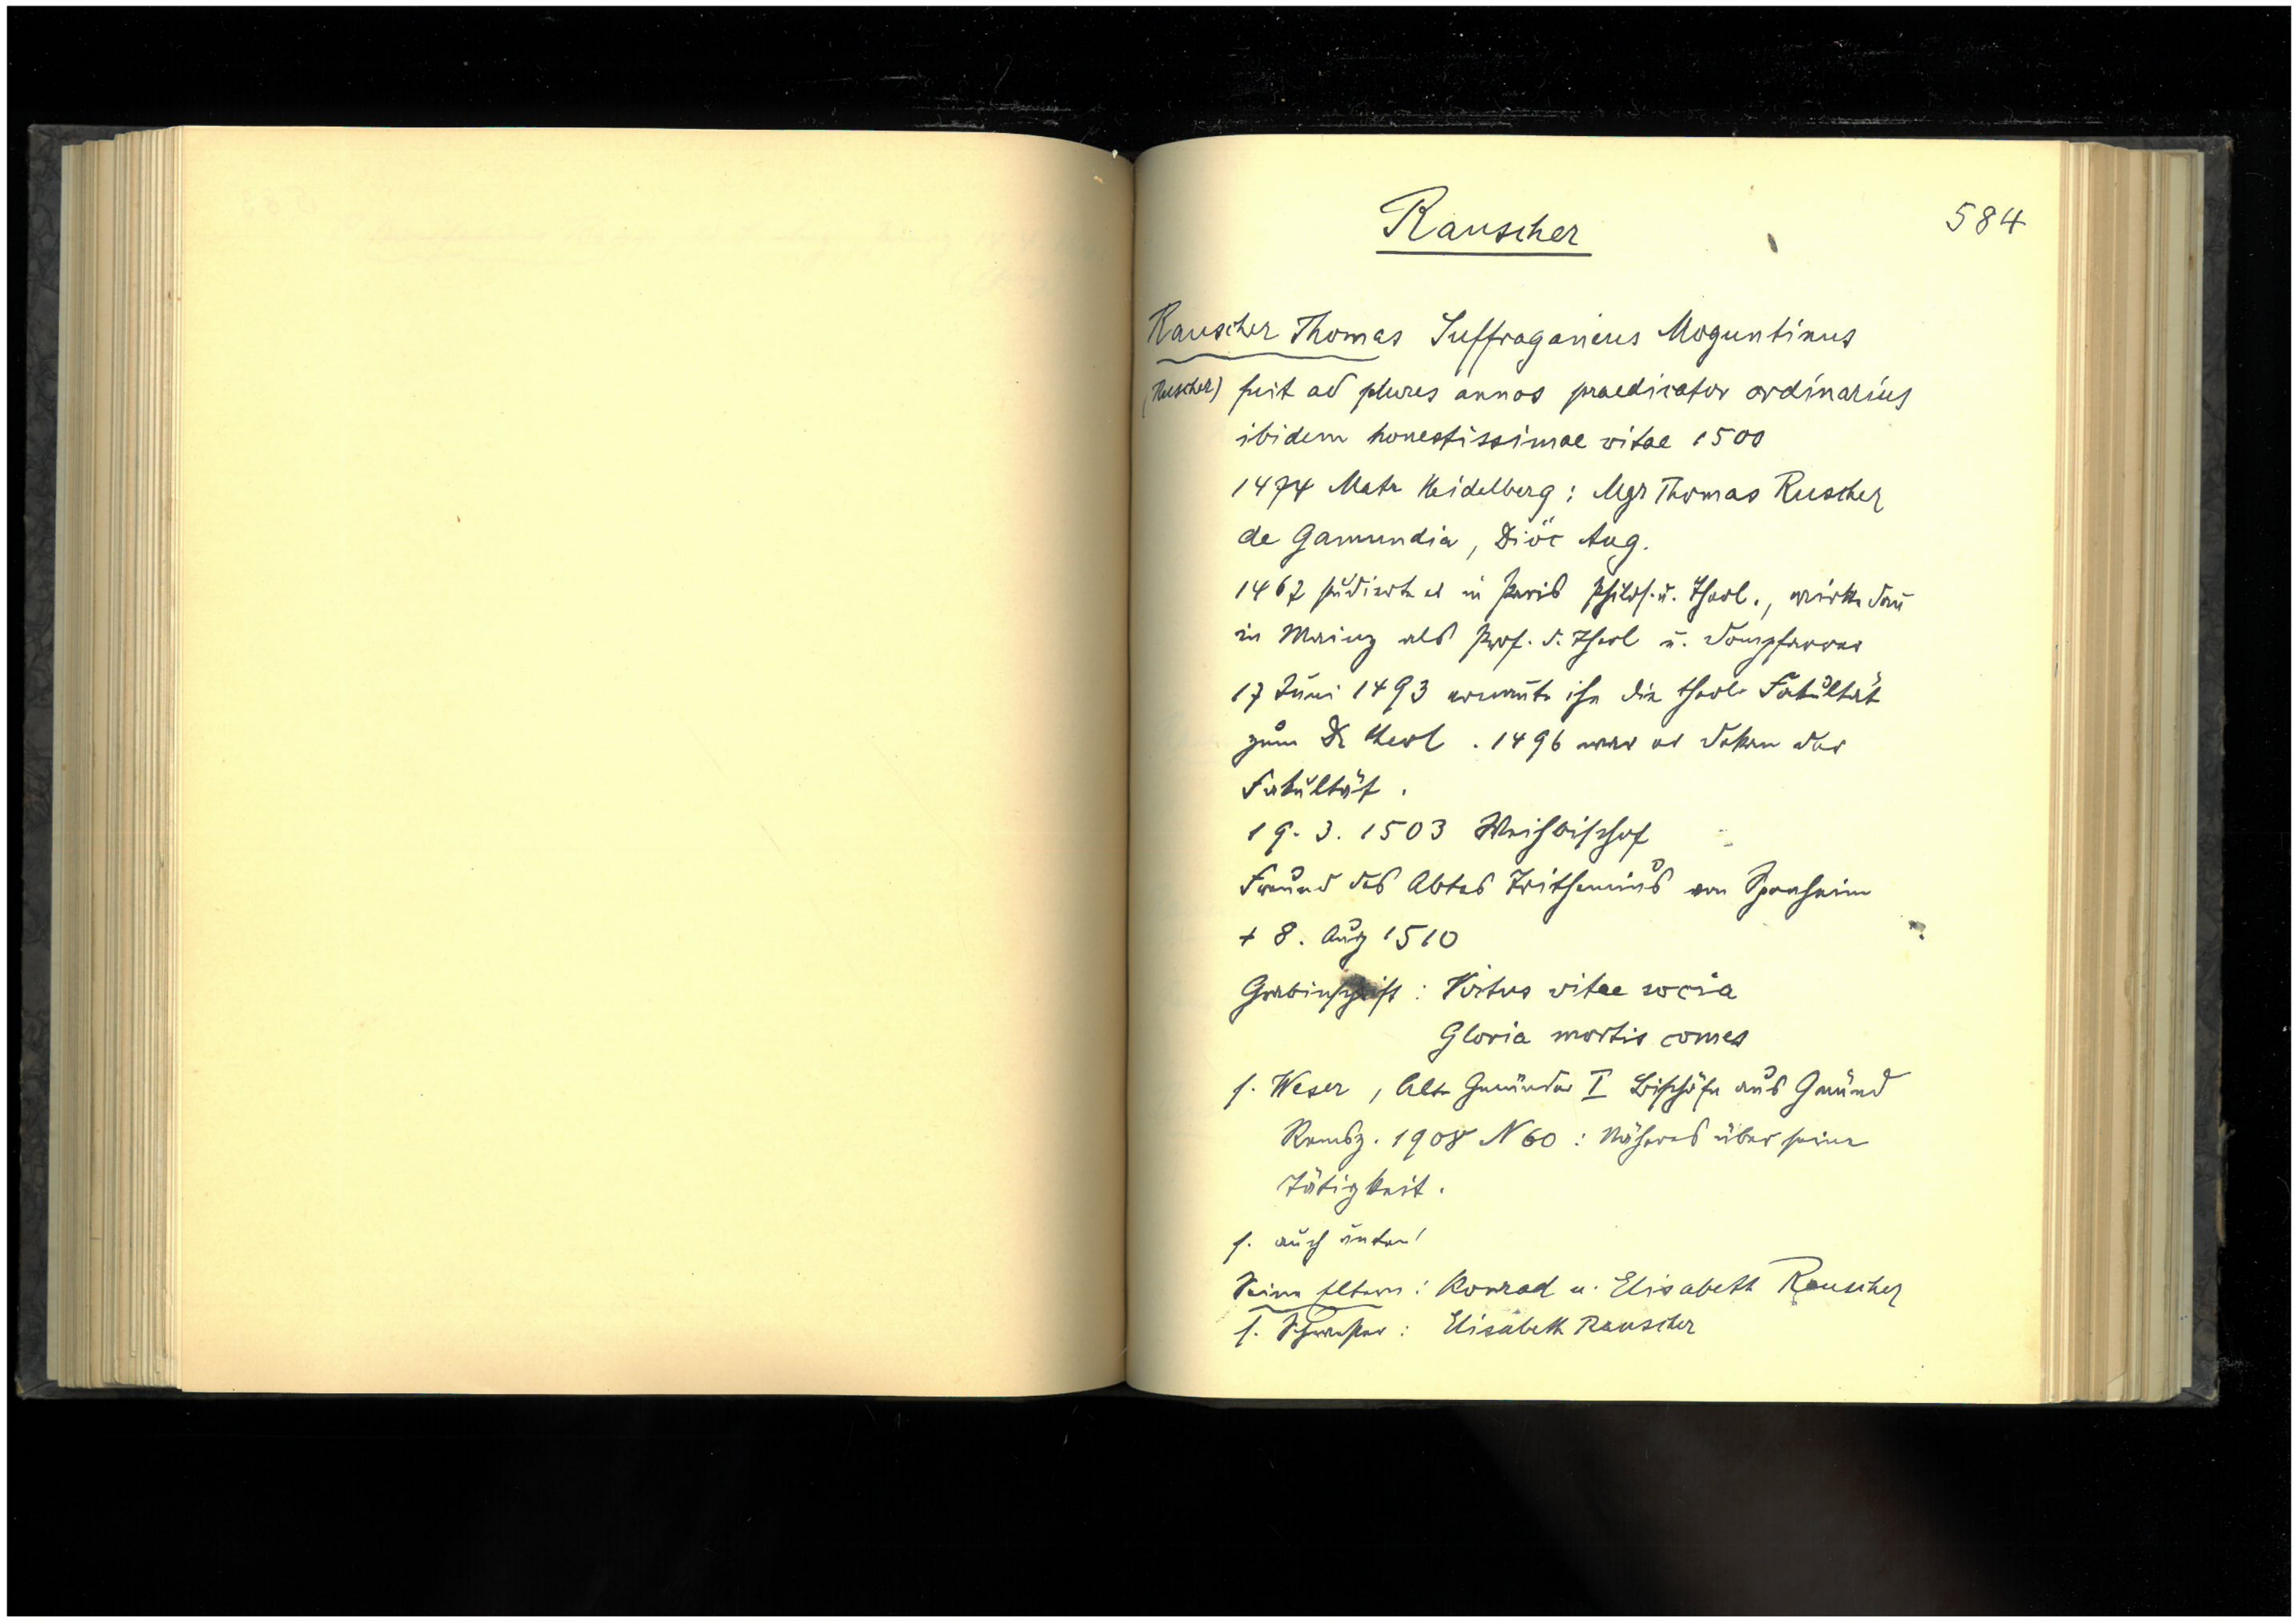 Rauscher
584
Rauscher Thomas Suffraganeus Moguntinus
(Ruscher) fuit ad plures annos praedicator ordinarius
ibidem honestissimae vitae 1500
1474 Matr Heidelberg: Mgr Thomas Ruscher
de Gamundia, Diöc Aug.
1467 studierte er in Paris Philos. u. Theol., wirkte dan̄
in Mainz als Prof. d. Theol u. Dompfarrer
17 Juni 1493 ernan̄te ihn die theol. Fakultät
zum Dr theol. 1496 war er Dekan der
Fakultät.
19. 3. 1503 Weihbischof
Freund des Abtes Trithemius von Sponheim
+ 8. Aug 1510
Grabinschrift: Virtus vitae socia
Gloria mortis comes
s. Weser, Alte Gmünder I Bischöfe aus Gmünd
Remsz. 1908 N 60: Näheres über seine
Tätigkeit.
s. auch unten!
Seine Eltern: Konrad u. Elisabeth Rauscher
s. Schwester: Elisabeth Rauscher